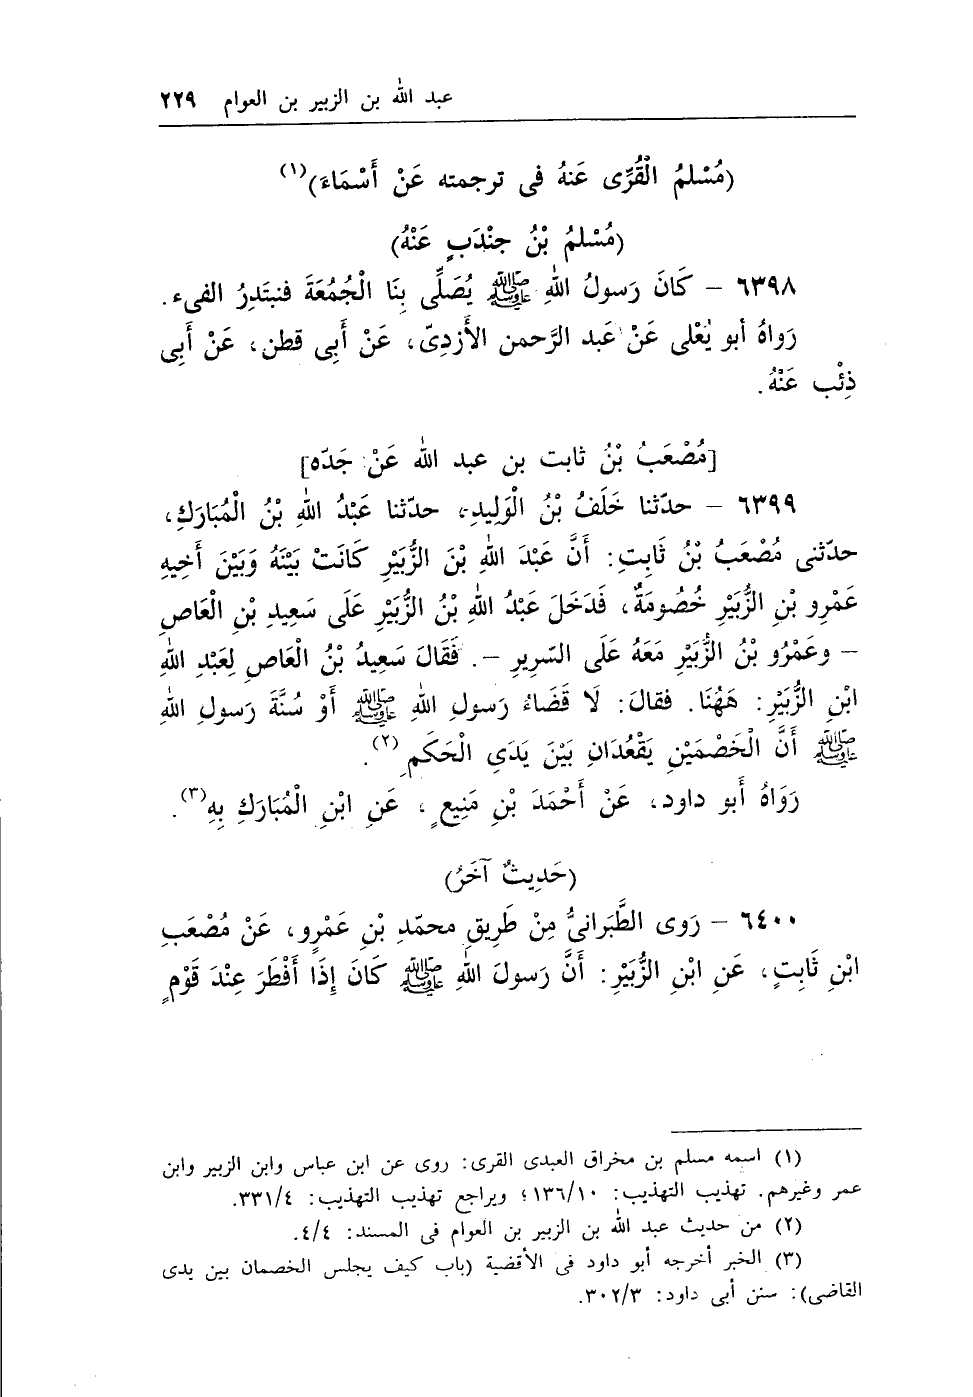 عبد الله بن الزبير بن العوام ٢٢٩
(مُسْلمُ الْقُرِّى عَنهُ فى ترجمته عَنْ أَسْمَاءَ)(١)
(مُسْلمُ بْنُ جنْدَبٍ عَنْهُ)
٦٣٩٨ – كَانَ رَسولُ اللهِ ﷺ يُصَلِّى بِنَا الْجُمُعَةَ فنبتَدِرُ الفىء.
رَواهُ أبو يَعْلى عَنْ عَبد الرَّحمن الأَزدِىّ، عَنْ أَبِى قطن، عَنْ أَبِى
ذِئْب عَنْهُ.
[مُصْعَبُ بْنُ ثابت بن عبد الله عَنْ جَدّه]
٦٣٩٩ – حدّثنا خَلَفُ بْنُ الْوَلِيدِ، حدّثنا عَبْدُ اللهِ بْنُ الْمُبَارَكِ،
حدّثنى مُصْعَبُ بْنُ ثَابِتِ: أَنَّ عَبْدَ اللهِ بْنَ الزُّبَيْرِ كَانَتْ بَيْنَهُ وَبَيْنَ أَخِيهِ
عَمْرِو بْنِ الزُّبَيْرِ خُصُومَةٌ، فَدَخَلَ عَبْدُ اللهِ بْنُ الزُّبَيْرِ عَلَى سَعِيدِ بْنِ الْعَاصِ
– وعَمْرُو بْنُ الزُّبَيْرِ مَعَهُ عَلَى السّرِيرِ –. فَقَالَ سَعِيدُ بْنُ الْعَاصِ لِعَبْدِ اللهِ
ابْنِ الزُّبَيْرِ: هَهُنَا. فقالَ: لَا قَضَاءُ رَسولِ اللهِ ﷺ أَوْ سُنَّةَ رَسولِ اللهِ
ﷺ أَنَّ الْخَصْمَيْنِ يَقْعُدَانِ بَيْنَ يَدَىِ الْحَكَمِ(٢).
رَوَاهُ أَبو داود، عَنْ أَحْمَدَ بْنِ مَنِيعٍ، عَنِ ابْنِ الْمُبَارَكِ بِهِ(٣).
(حَدِيثٌ آخَرُ)
٦٤٠٠ – رَوى الطَّبَرانىُّ مِنْ طَرِيقِ محمّدِ بْنِ عَمْرٍو، عَنْ مُصْعَبِ
ابْنِ ثَابِتٍ، عَنِ ابْنِ الزُّبَيْرِ: أَنَّ رَسولَ اللهِ ﷺ كَانَ إِذَا أَفْطَرَ عِنْدَ قَوْمٍ
(١) اسمه مسلم بن مخراق العبدى القرى: روى عن ابن عباس وابن الزبير وابن
عمر وغيرهم. تهذيب التهذيب: ١٣٦/١٠؛ ويراجع تهذيب التهذيب: ٣٣١/٤.
(٢) من حديث عبد الله بن الزبير بن العوام فى المسند: ٤/٤.
(٣) الخبر أخرجه أبو داود فى الأقضية (باب كيف يجلس الخصمان بين يدى
القاضى): سنن أبى داود: ٣٠٢/٣.